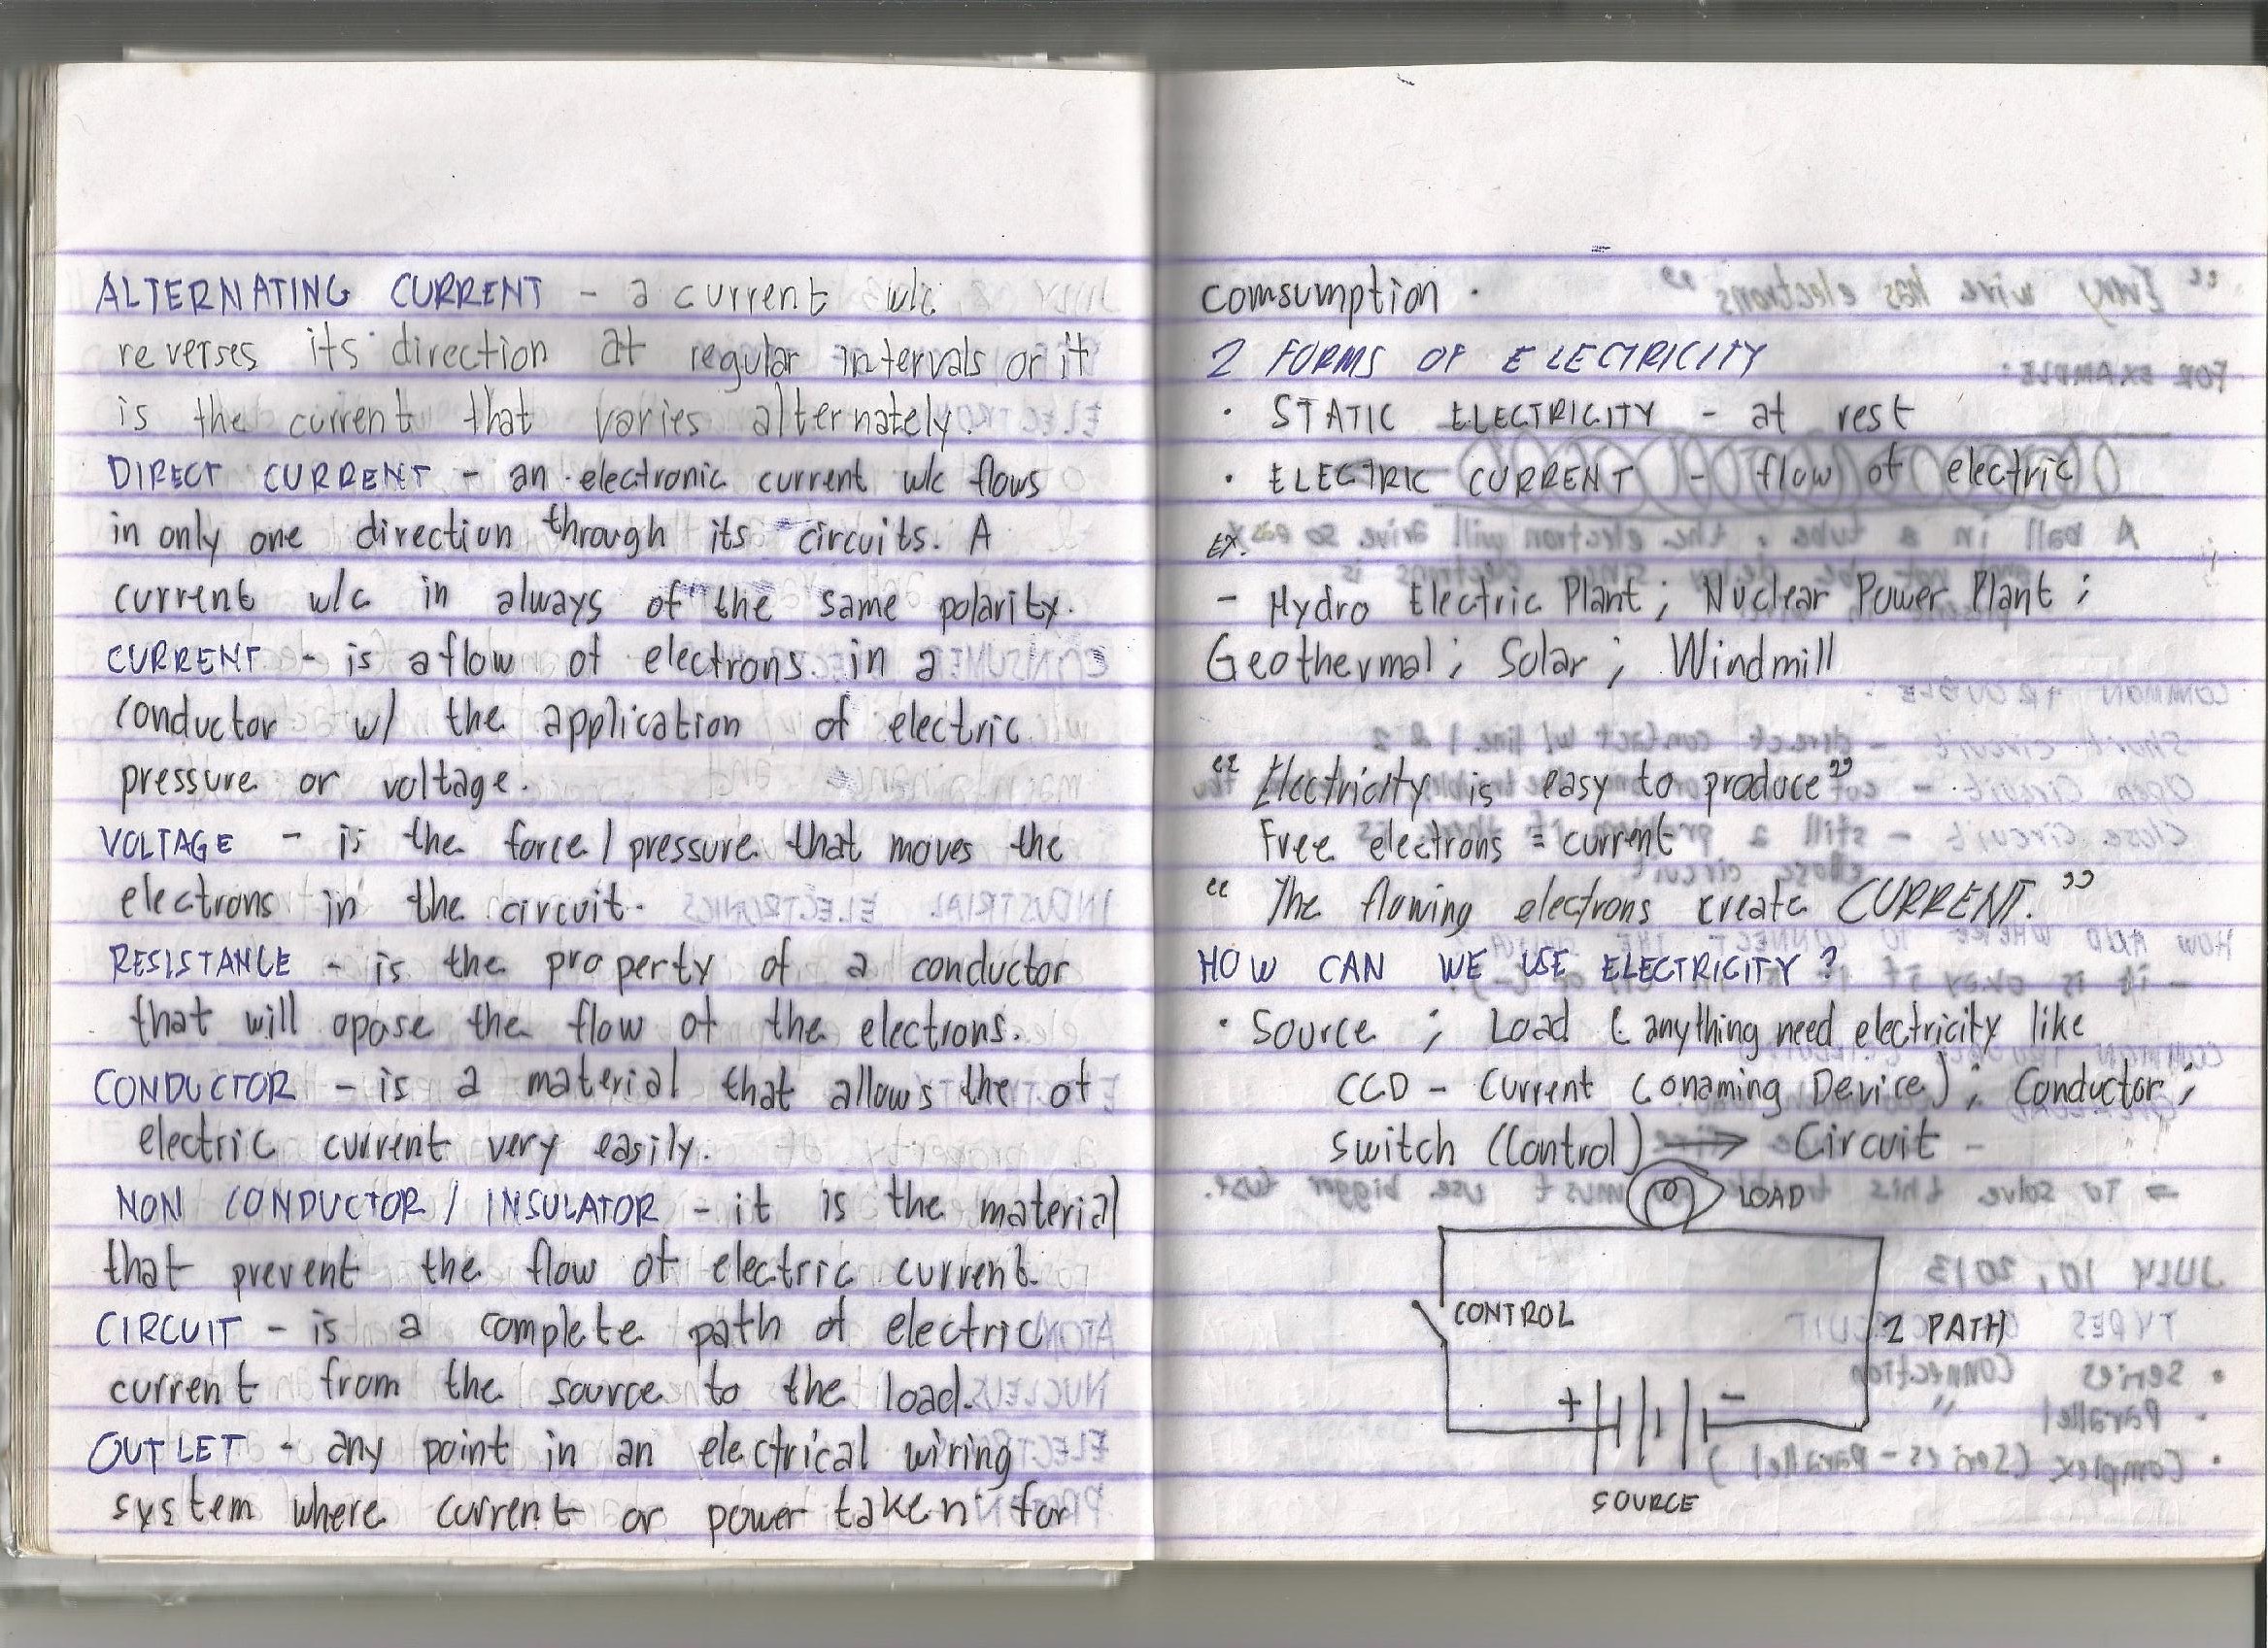 ALTERNATING CURRENT - a current w/c
reverses its direction at regular intervals or it
is the current that varies alternately.
DIRECT CURRENT - an electronic current w/c flows
in only one direction through its circuits. A
current w/c in always of the same polarity.
CURRENT - is a flow of electrons in a
conductor w/ the application of electric
pressure or voltage.
VOLTAGE - is the force / pressure that moves the
electrons in the circuit.
RESISTANCE - is the property of a conductor
that will opose the flow of the electrons.
CONDUCTOR - is a material that allows the of
electric current very easily.
NON CONDUCTOR / INSULATOR - it is the material
that prevent the flow of electric current.
CIRCUIT - is a complete path of electric
current from the source to the load.
OUTLET - any point in an electrical wiring
system where current or power taken for
comsumption.
2 FORMS OF ELECTRICITY
• STATIC ELECTRICITY - at rest
• ELECTRIC CURRENT - flow of electric
EX.
- Hydro Electric Plant ; Nuclear Power Plant ;
Geothermal ; Solar ; Windmill
“ Electricity is easy to produce ”
Free electrons = current
“ The flowing electrons create CURRENT. ”
HOW CAN WE USE ELECTRICITY ?
• Source ; Load ( anything need electricity like
CCD - Current Conaming Device ) ; Conductor ;
Switch (Control) → Circuit -
LOAD
CONTROL
2 PATH
+ -
SOURCE